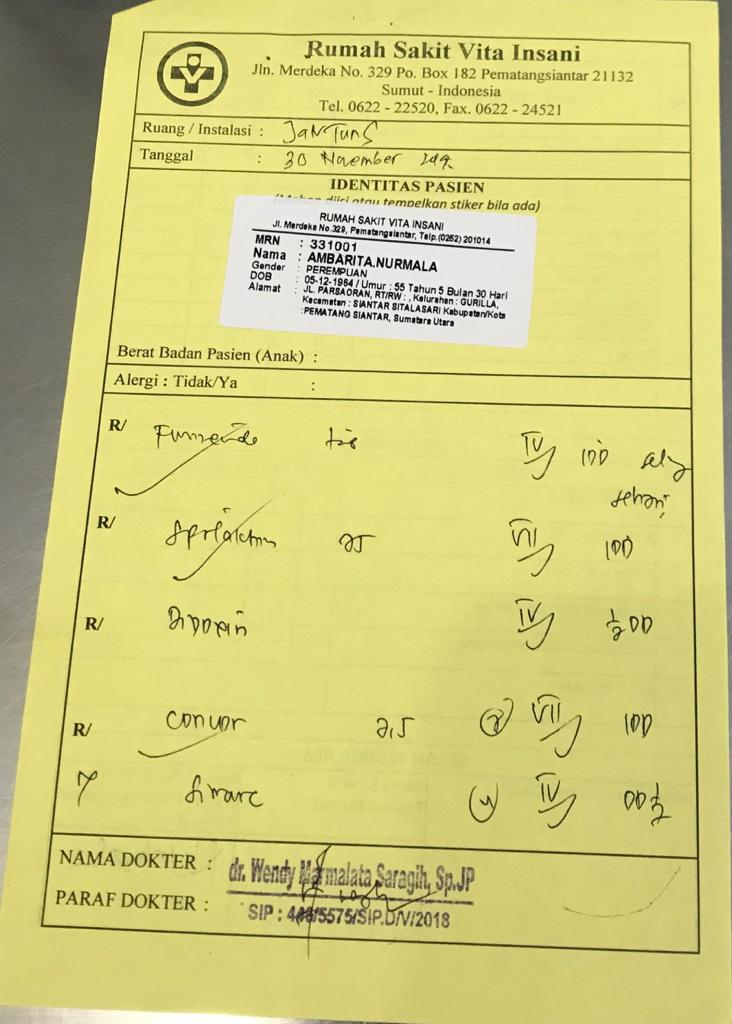 Rumah Sakit Vita Insani
Jln. Merdeka No. 329 Po. Box 182 Pematangsiantar 21132
Sumut - Indonesia
Tel. 0622 - 22520, Fax. 0622 - 24521
Ruang / Instalasi : Jantung
Tanggal : 30 November
IDENTITAS PASIEN
diisi atau tempelkan stiker bila ada)
RUMAH SAKIT VITA INSANI
Jl. Merdeka No.329, Pematangsiantar, Telp.(0262) 201014
MRN : 331001
Nama : AMBARITA.NURMALA
Gender : PEREMPUAN
DOB : 05-12-1964 / Umur : 55 Tahun 5 Bulan 30 Hari
Alamat : JL. PARSAORAN, RT/RW : , Kelurahan : GURILLA,
Kecamatan : SIANTAR SITALASARI Kabupaten/Kota
:PEMATANG SIANTAR, Sumatera Utara
Berat Badan Pasien (Anak) :
Alergi : Tidak/Ya :
R/ IV 1DD
R/ 25 VII 1DD
R/ IV ½DD
R/ Concor 2,5 VII 1DD
IV
NAMA DOKTER : dr. Wendy Marmalata Saragih, Sp.JP
PARAF DOKTER :
SIP : 446/5575/SIP.D/V/2018